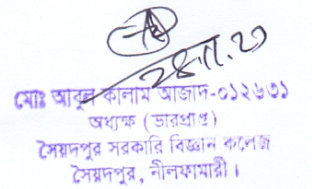 ২৪.১১.২০
মোঃ আবুল কালাম আজাদ-০১২৬৩১
অধ্যক্ষ (ভারপ্রাপ্ত)
সৈয়দপুর সরকারি বিজ্ঞান কলেজ
সৈয়দপুর, নীলফামারী।